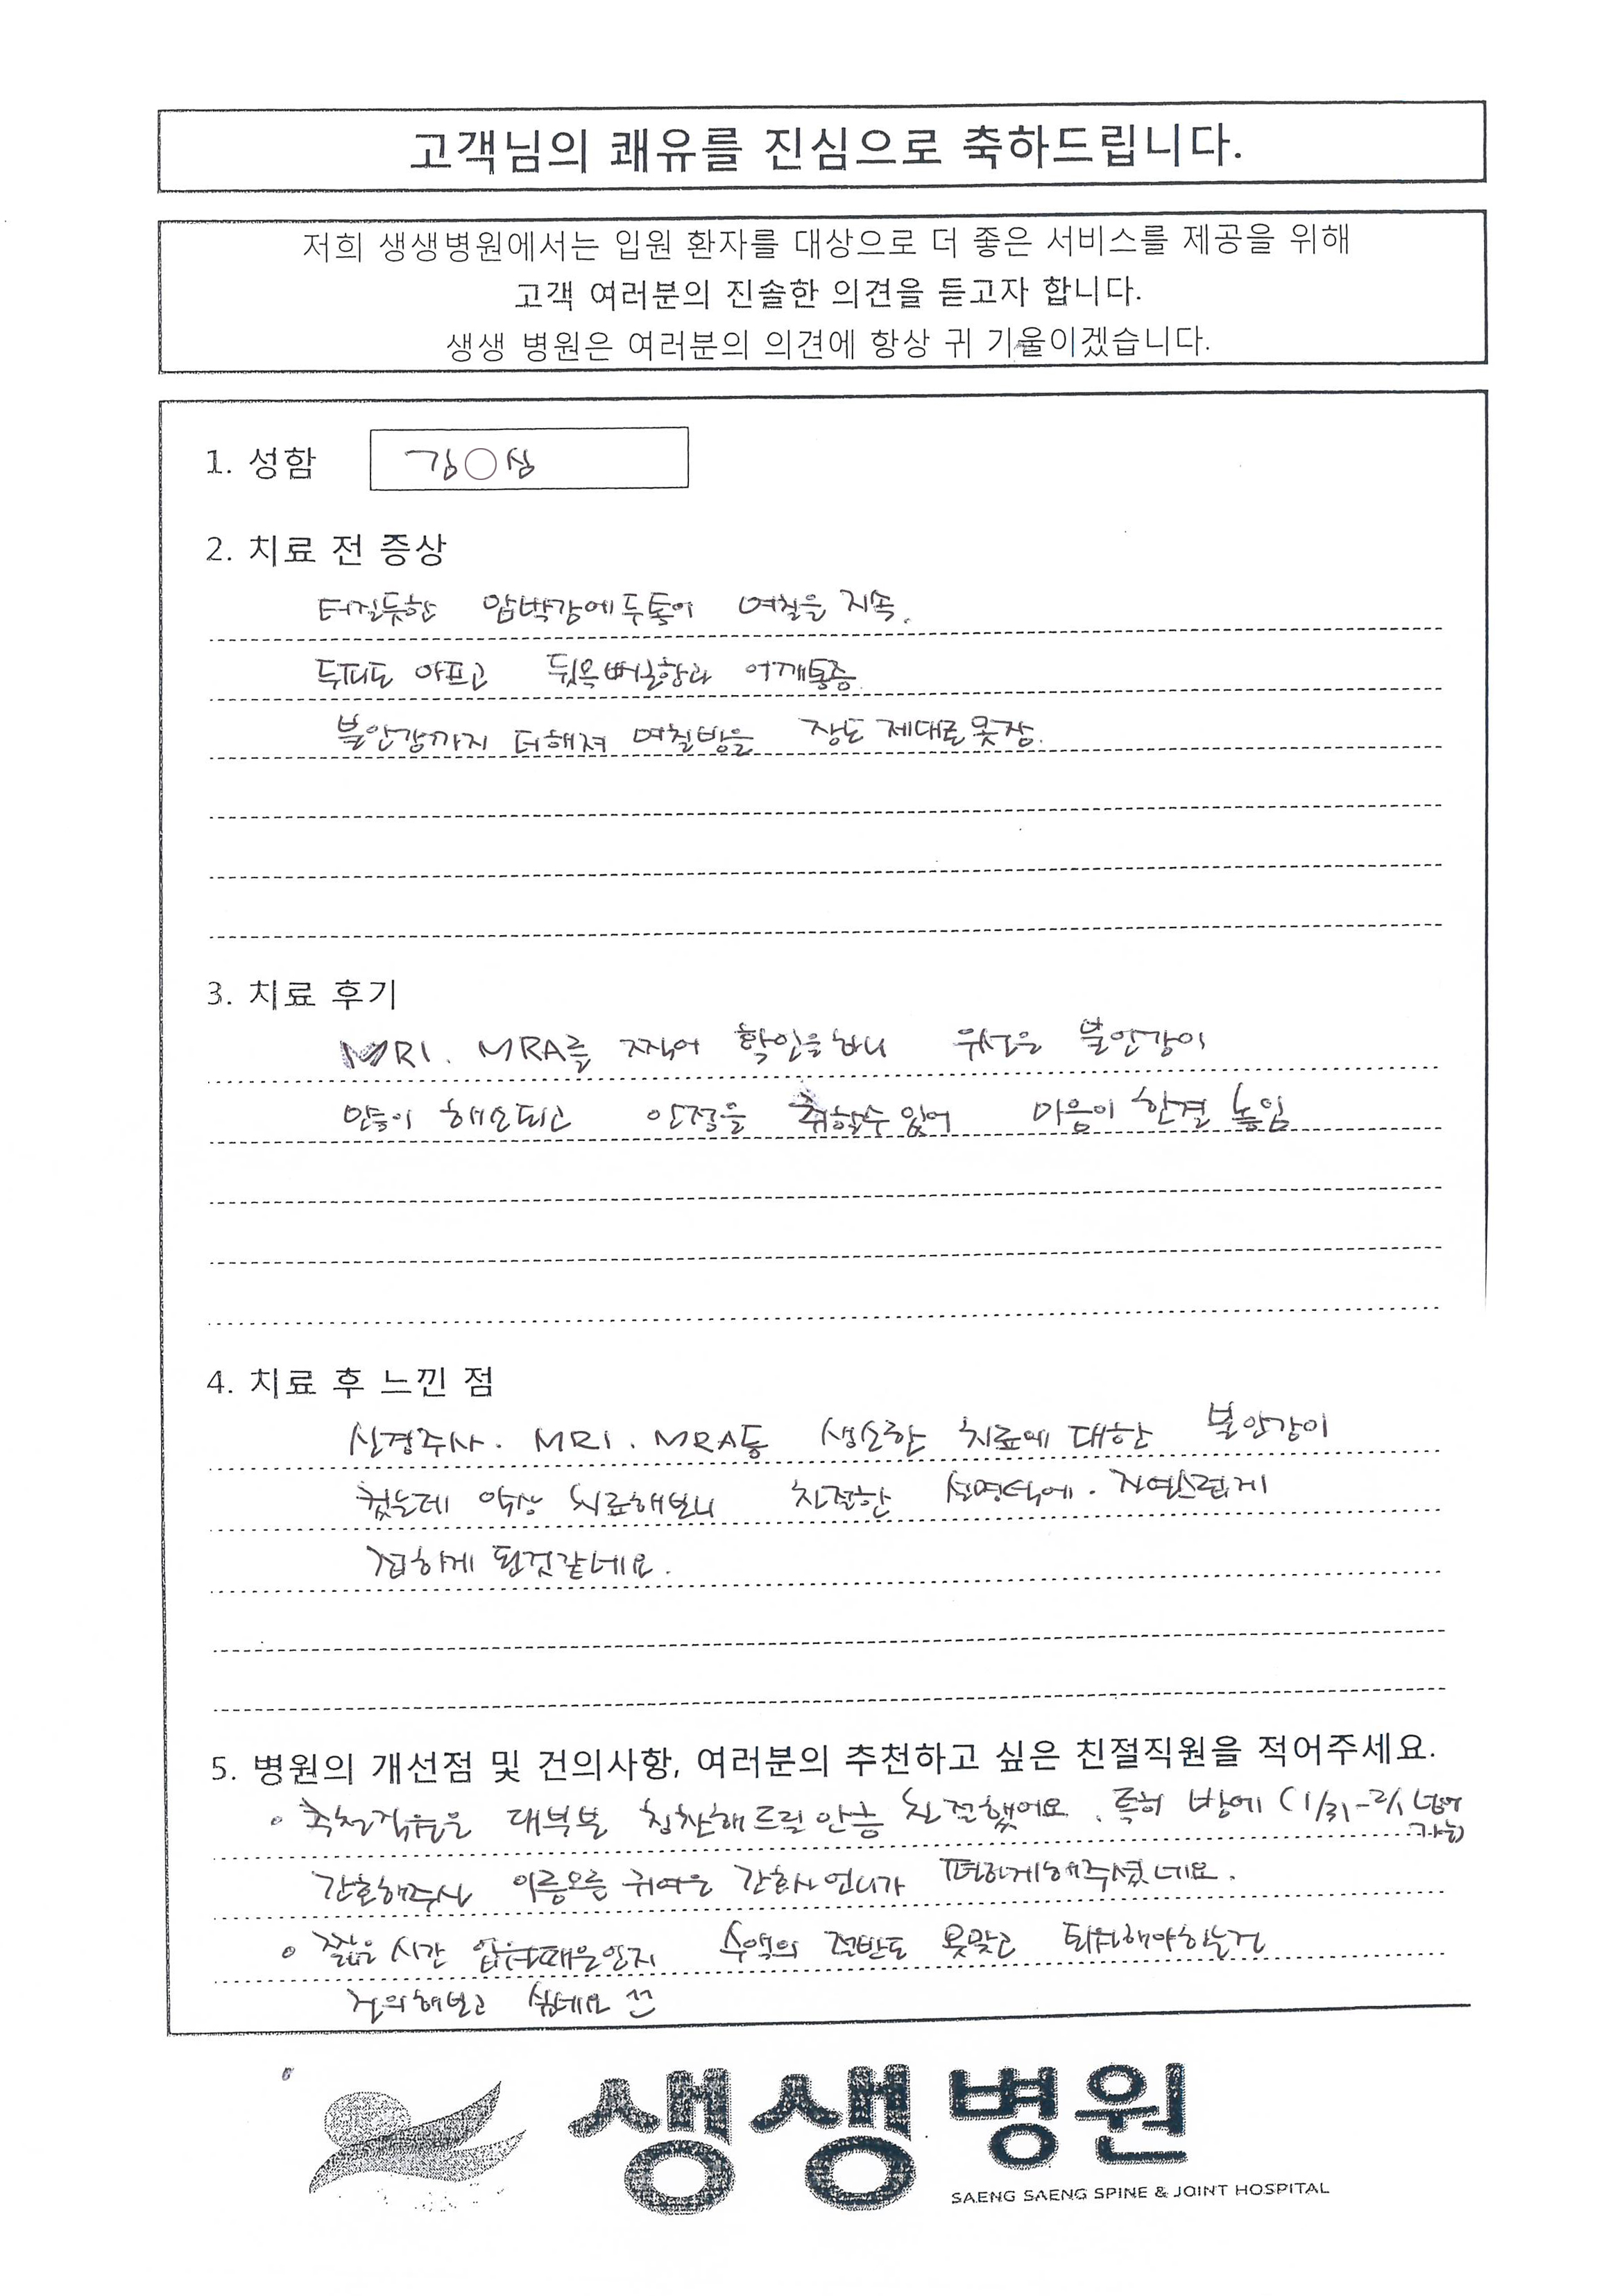 고객님의 쾌유를 진심으로 축하드립니다.
저희 생생병원에서는 입원 환자를 대상으로 더 좋은 서비스를 제공을 위해
고객 여러분의 진솔한 의견을 듣고자 합니다.
생생 병원은 여러분의 의견에 항상 귀 기울이겠습니다.
1. 성함 김○심
2. 치료 전 증상
터질듯한 압박감에 두통이 며칠을 지속.
두피도 아프고 뒷목뻐근함과 어깨통증
불안감까지 더해져 며칠밤을 잠도 제대로 못잠.
3. 치료 후기
MRI. MRA를 찍어 확인을하니 우선은 불안감이
많이 해소되고 안정을 취할수 있어 마음이 한결 놓임
4. 치료 후 느낀 점
신경주사. MRI. MRA등 생소한 치료에 대한 불안감이
컸는데 막상 치료해보니 친절한 설명덕에. 자연스럽게
접하게 된것같네요.
5. 병원의 개선점 및 건의사항, 여러분의 추천하고 싶은 친절직원을 적어주세요.
◦ 추천직원은 대부분 칭찬해드릴만큼 친절했어요. 특히 밤에 (1/31-2/1
간호해주신 이름모를 귀여운 간호사 언니가 편하게해주셨네요.
◦ 짧은 시간 입원때문인지 수액의 절반도 못맞고 퇴원해야하는건
건의해보고 싶네요
생생병원
SAENG SAENG SPINE & JOINT HOSPITAL